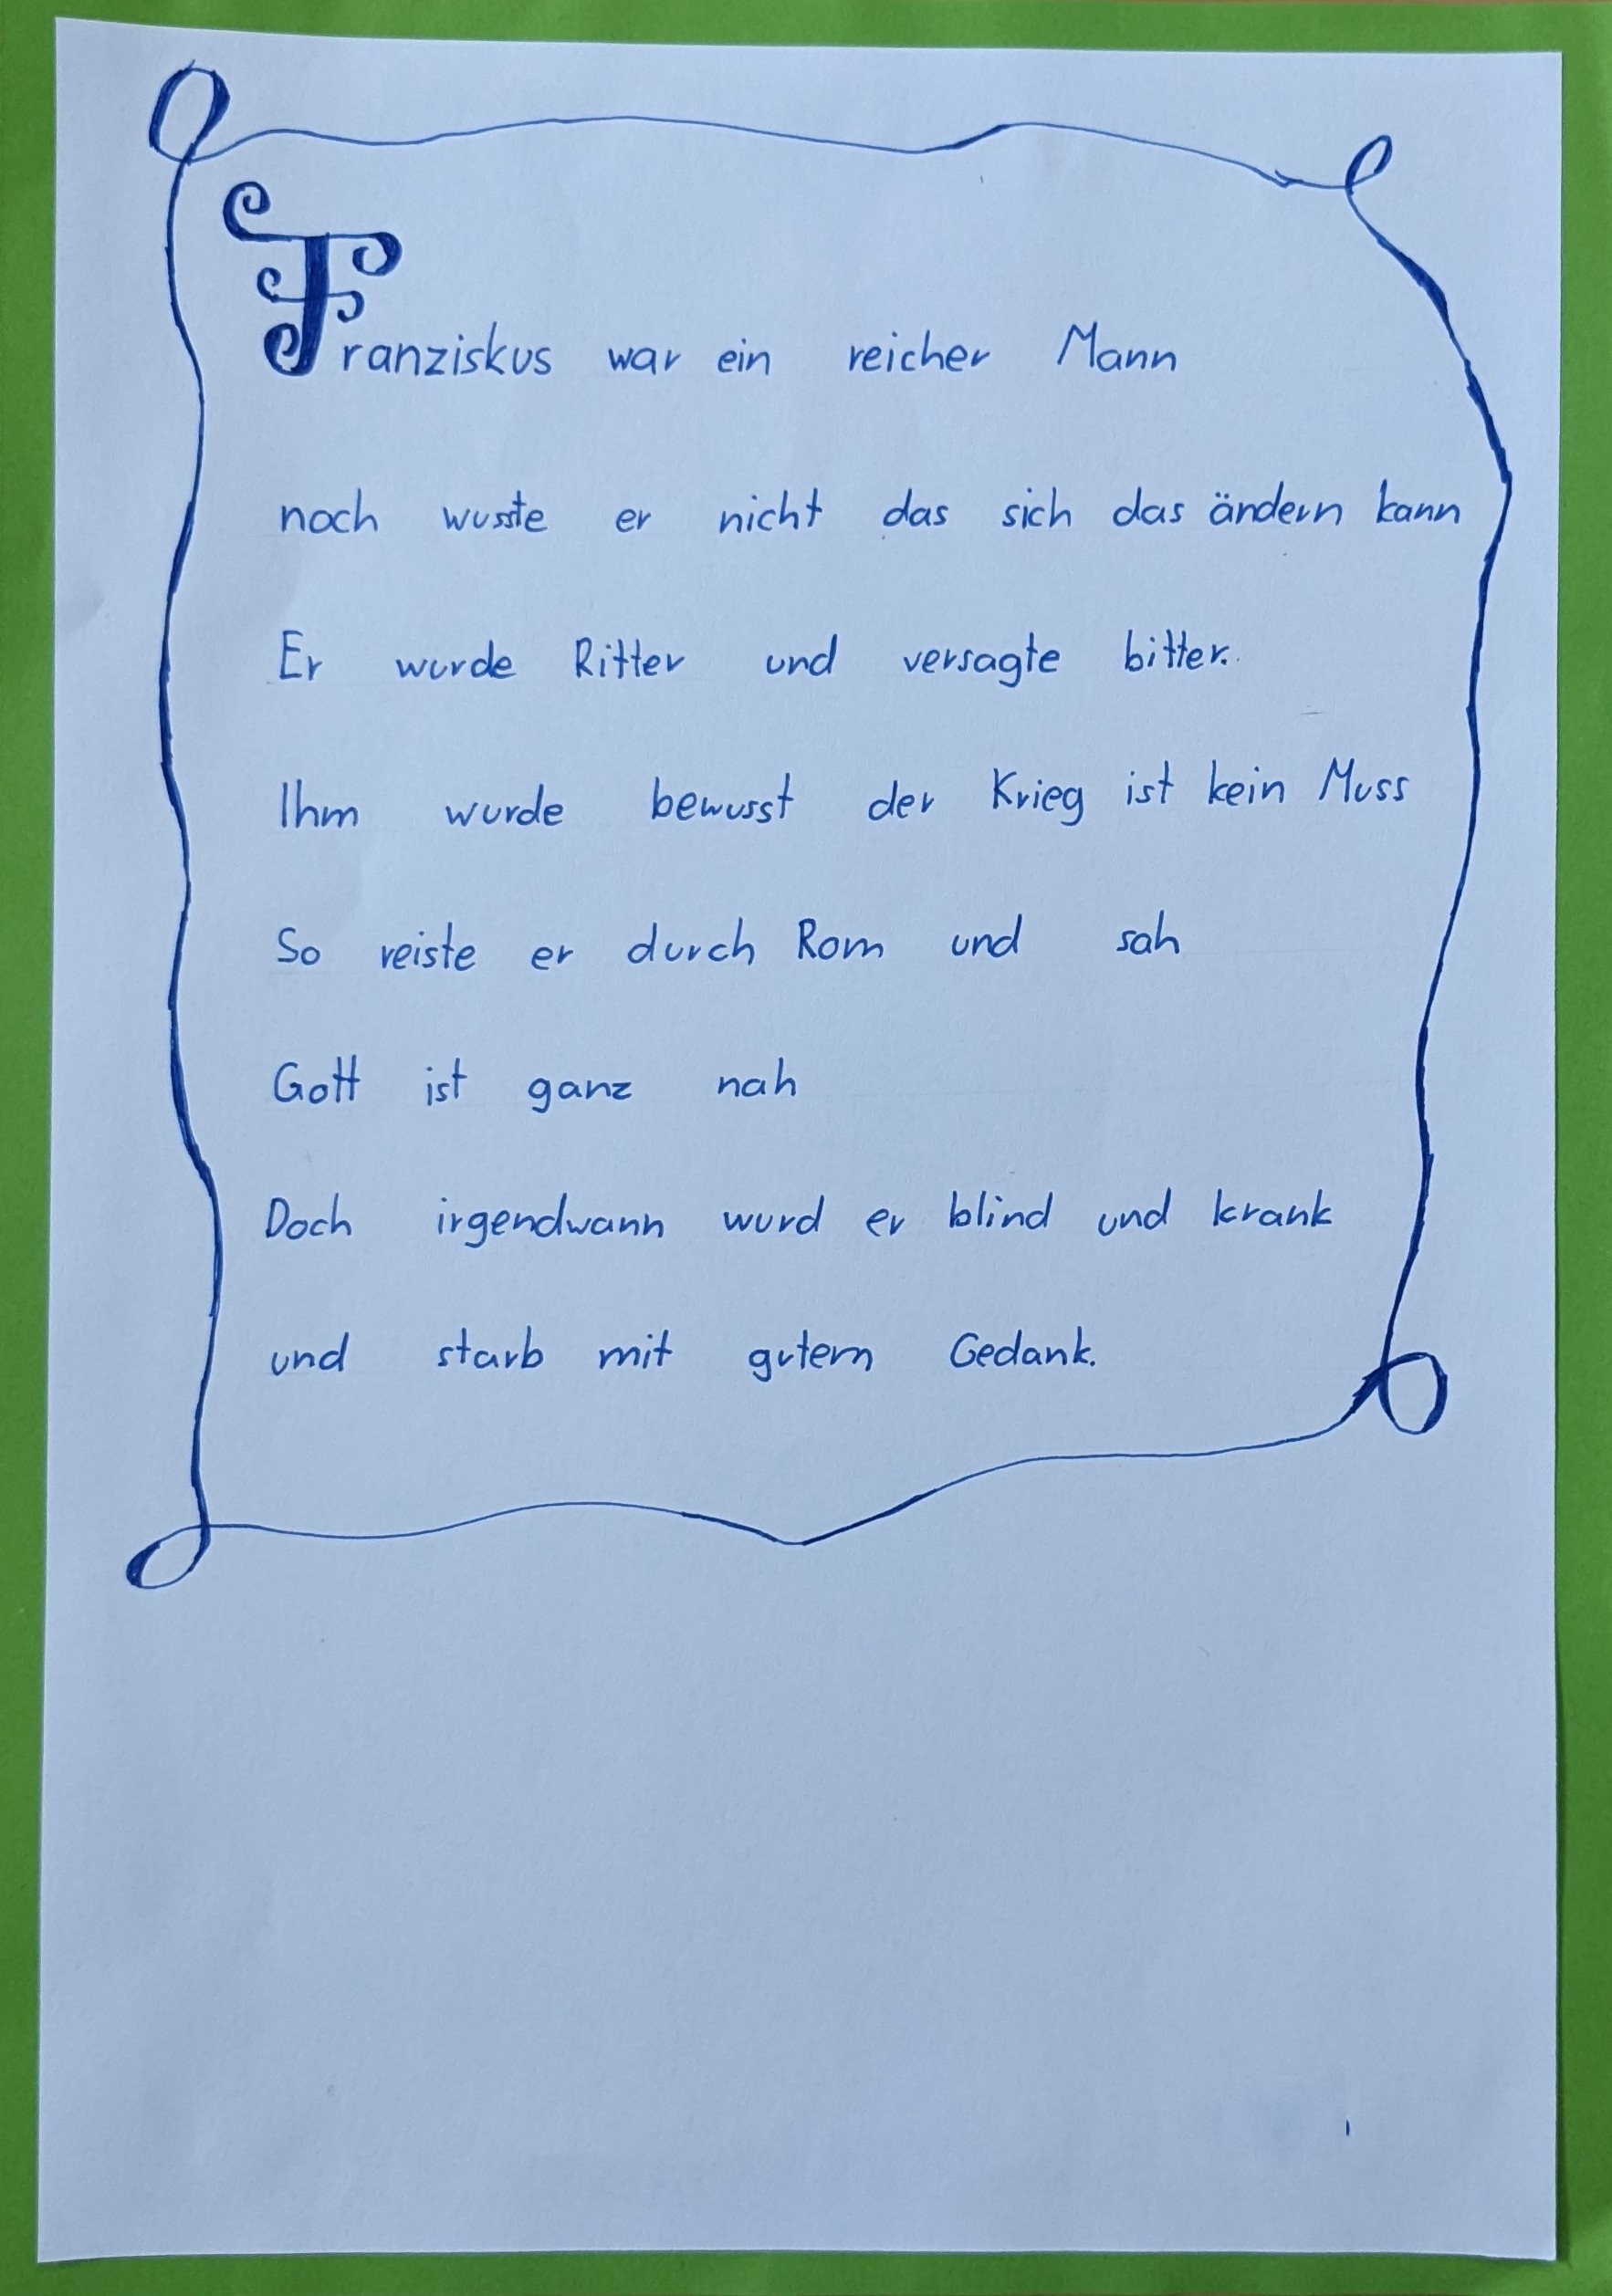 Franziskus war ein reicher Mann
noch wusste er nicht das sich das ändern kann
Er wurde Ritter und versagte bitter.
Ihm wurde bewusst der Krieg ist kein Muss
So reiste er durch Rom und sah
Gott ist ganz nah
Doch irgendwann wurd er blind und krank
und starb mit gutem Gedank.